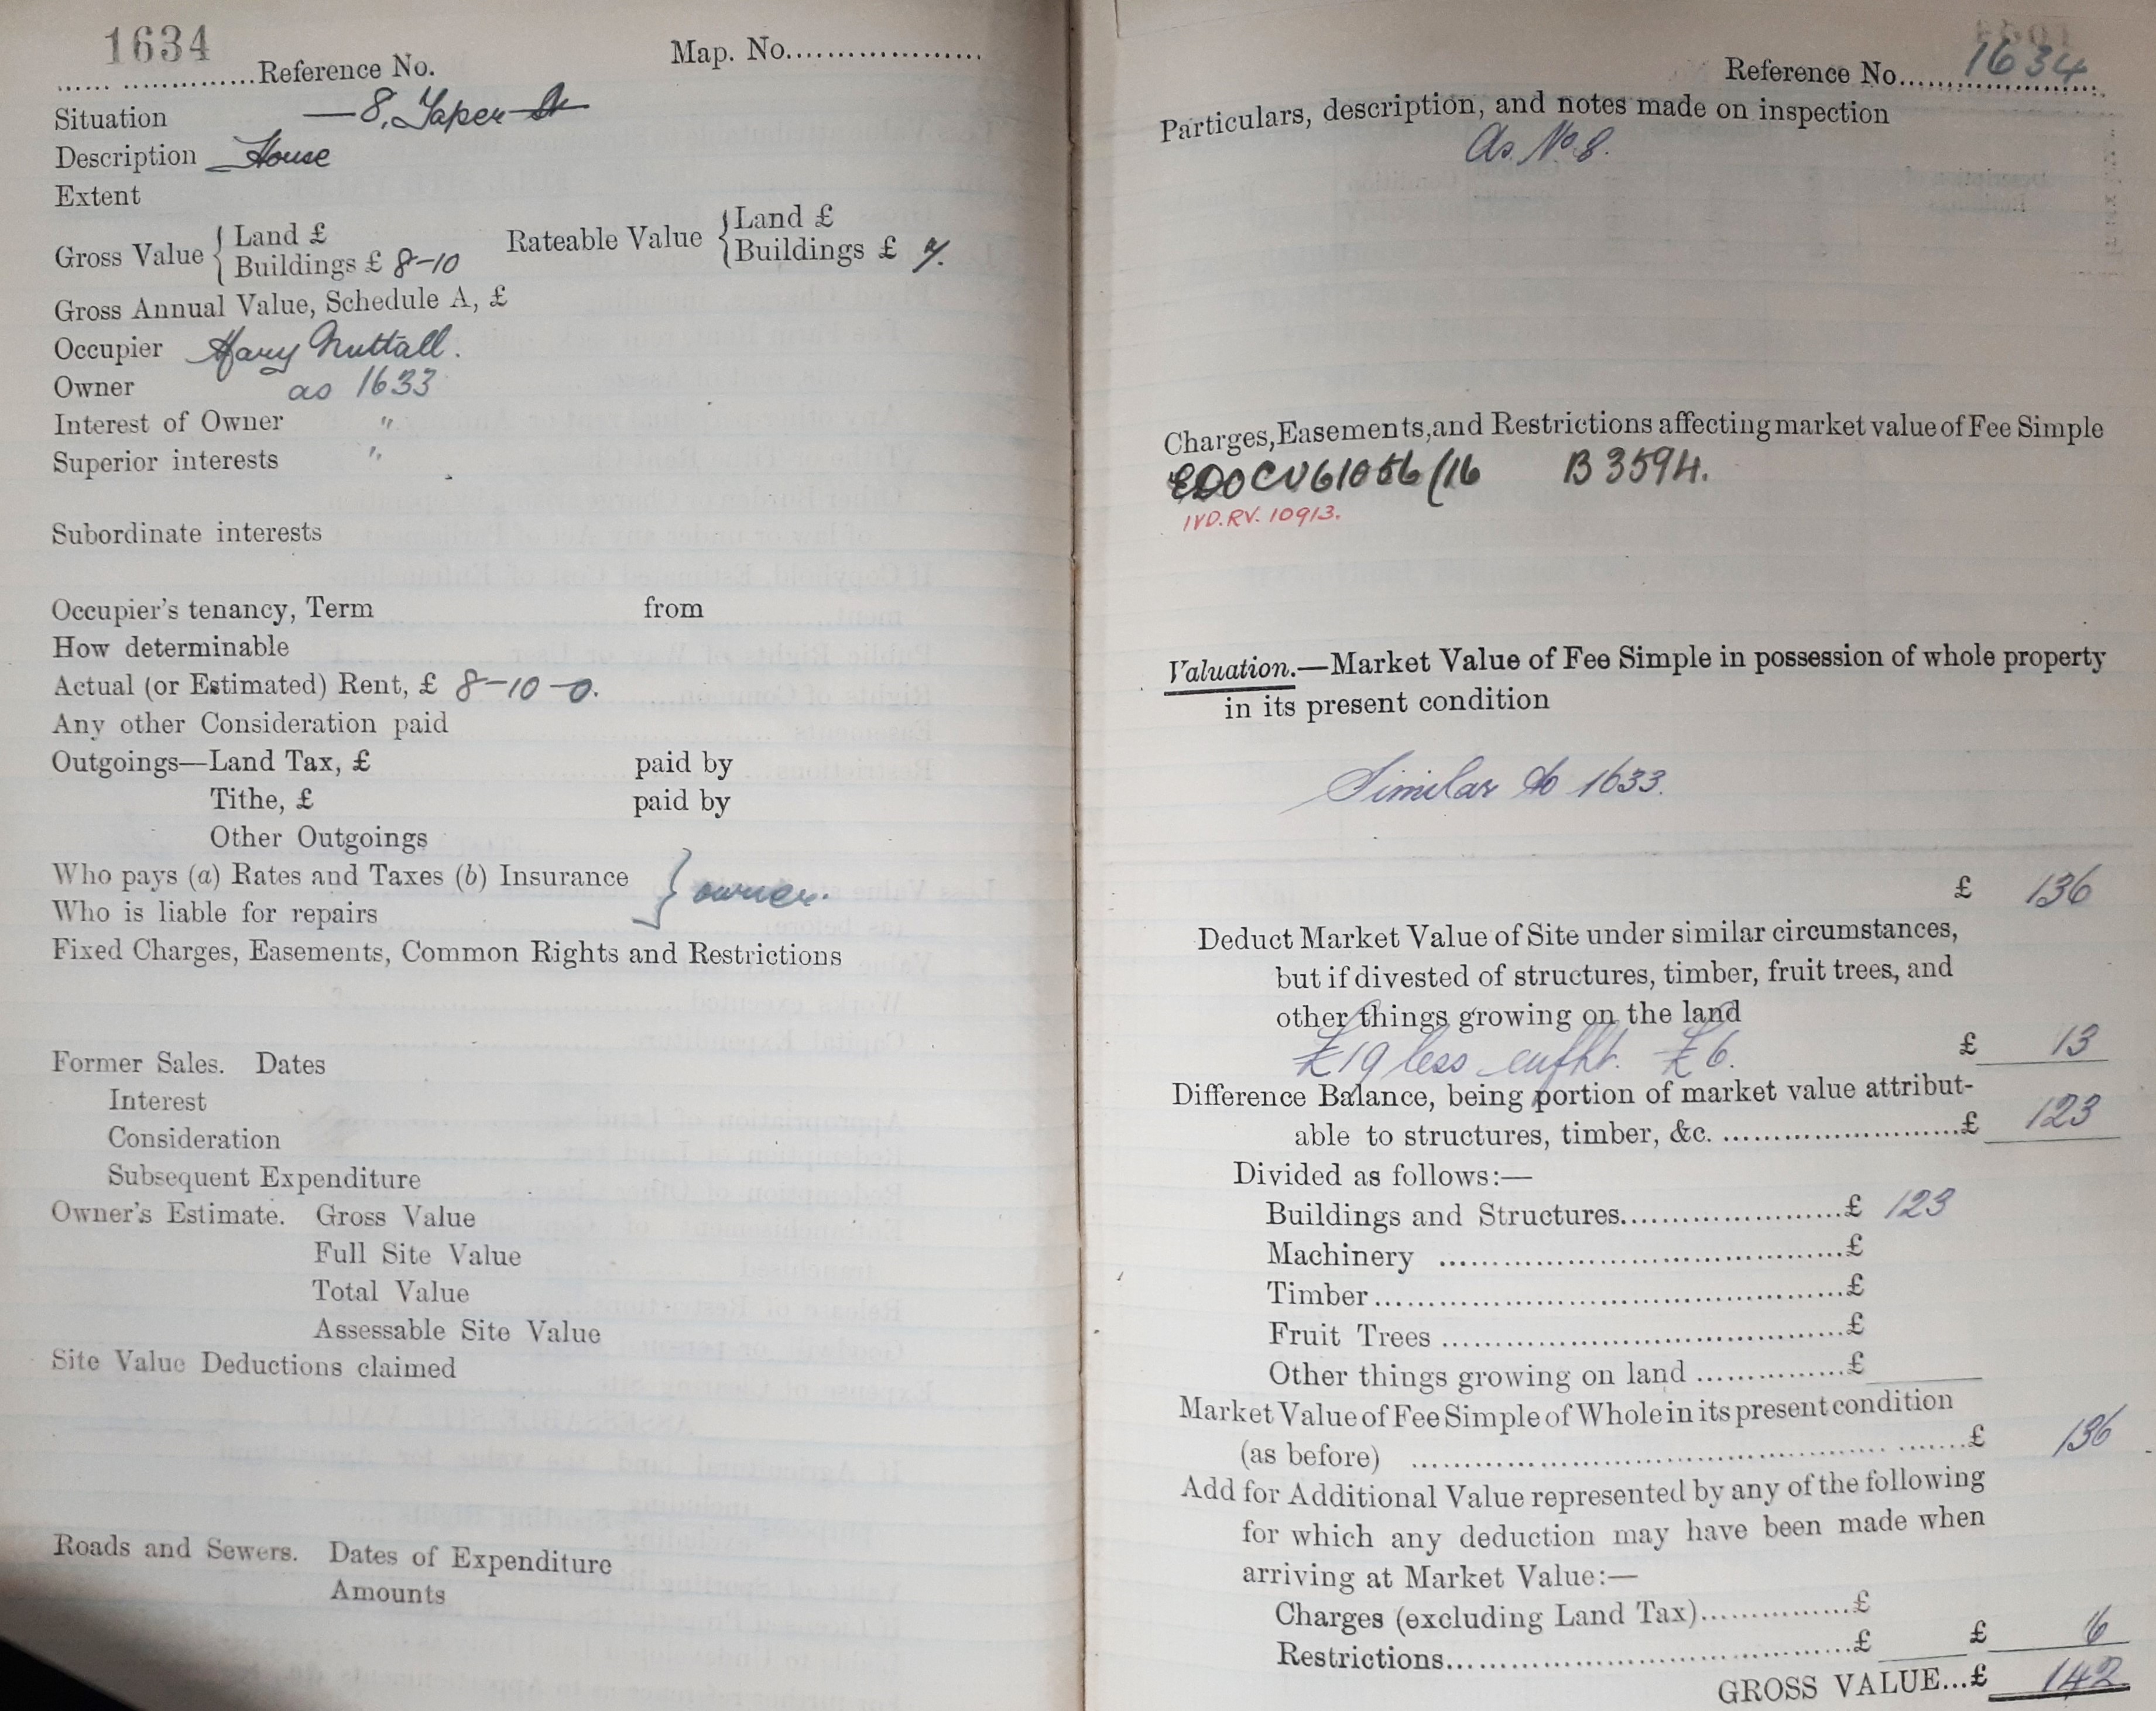 1634
...... ...............Reference No. Map. No......................
Situation —8, Taper St
Description House
Extent
Gross Value { Land £ Rateable Value { Land £
Buildings £ 8-10 Buildings £ 7.
Gross Annual Value, Schedule A, £
Occupier Mary Nuttall.
Owner as 1633
Interest of Owner "
Superior interests "
Subordinate interests
Occupier's tenancy, Term from
How determinable
Actual (or Estimated) Rent, £ 8-10-0.
Any other Consideration paid
Outgoings—Land Tax, £ paid by
Tithe, £ paid by
Other Outgoings
Who pays (a) Rates and Taxes (b) Insurance } owner.
Who is liable for repairs
Fixed Charges, Easements, Common Rights and Restrictions
Former Sales. Dates
Interest
Consideration
Subsequent Expenditure
Owner's Estimate. Gross Value
Full Site Value
Total Value
Assessable Site Value
Site Value Deductions claimed
Roads and Sewers. Dates of Expenditure
Amounts
Reference No. 1634
Particulars, description, and notes made on inspection
As No 8.
Charges, Easements, and Restrictions affecting market value of Fee Simple
EDOCV61056/16 B3594.
IVD.RV. 10913.
Valuation.—Market Value of Fee Simple in possession of whole property
in its present condition
Similar to 1633.
£ 136
Deduct Market Value of Site under similar circumstances,
but if divested of structures, timber, fruit trees, and
other things growing on the land
£19 less enfht. £6. £ 13
Difference Balance, being portion of market value attribut-
able to structures, timber, &c. ..........................£ 123
Divided as follows:—
Buildings and Structures........................£ 123
Machinery ............................................£
Timber..................................................£
Fruit Trees ..........................................£
Other things growing on land ...............£
Market Value of Fee Simple of Whole in its present condition
(as before) ..................................................£ 136
Add for Additional Value represented by any of the following
for which any deduction may have been made when
arriving at Market Value:—
Charges (excluding Land Tax)...............£
Restrictions.........................................£ £ 6
GROSS VALUE...£ 142